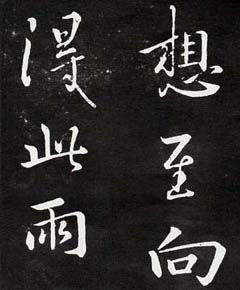 想至向
得此雨